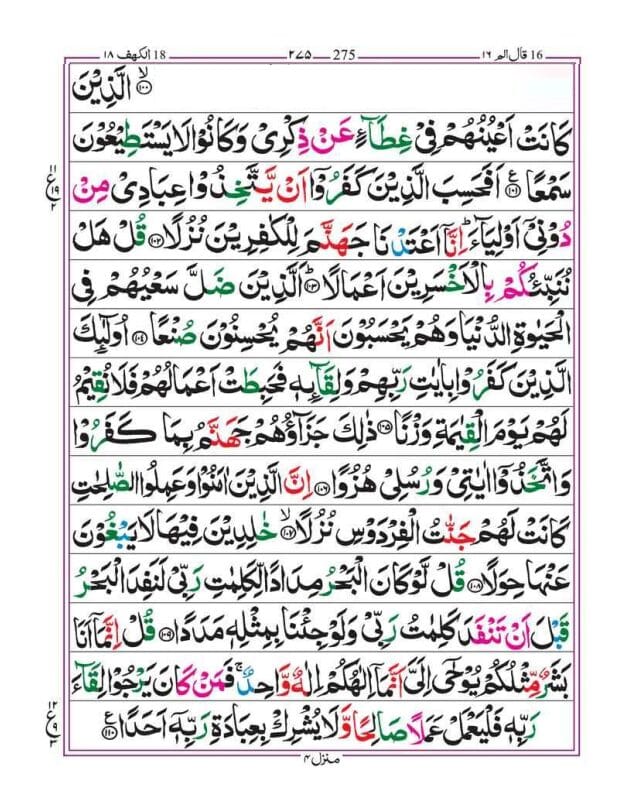 16 قال الم ١٦ 275 ٢٧٥ 18 الكهف ١٨
ۙ‏﴿١٠٠﴾ الَّذِیْنَ
كَانَتْ اَعْیُنُهُمْ فِیْ غِطَآءٍ عَنْ ذِكْرِیْ وَ كَانُوْا لَا یَسْتَطِیْعُوْنَ
سَمْعًا ﴿١٠١﴾ ع اَفَحَسِبَ الَّذِیْنَ كَفَرُوْۤا اَنْ یَّتَّخِذُوْا عِبَادِیْ مِنْ
دُوْنِیْۤ اَوْلِیَآءَ ؕ اِنَّاۤ اَعْتَدْنَا جَهَنَّمَ لِلْكٰفِرِیْنَ نُزُلًا ﴿١٠٢﴾ قُلْ هَلْ
نُنَبِّئُكُمْ بِالْاَخْسَرِیْنَ اَعْمَالًا ؕ﴿١٠٣﴾ اَلَّذِیْنَ ضَلَّ سَعْیُهُمْ فِی
الْحَیٰوةِ الدُّنْیَا وَ هُمْ یَحْسَبُوْنَ اَنَّهُمْ یُحْسِنُوْنَ صُنْعًا ﴿١٠٤﴾ اُولٰٓئِكَ
الَّذِیْنَ كَفَرُوْا بِاٰیٰتِ رَبِّهِمْ وَ لِقَآئِهٖ فَحَبِطَتْ اَعْمَالُهُمْ فَلَا نُقِیْمُ
لَهُمْ یَوْمَ الْقِیٰمَةِ وَزْنًا ﴿١٠٥﴾ ذٰلِكَ جَزَآؤُهُمْ جَهَنَّمُ بِمَا كَفَرُوْا
وَ اتَّخَذُوْۤا اٰیٰتِیْ وَ رُسُلِیْ هُزُوًا ﴿١٠٦﴾ اِنَّ الَّذِیْنَ اٰمَنُوْا وَ عَمِلُوا الصّٰلِحٰتِ
كَانَتْ لَهُمْ جَنّٰتُ الْفِرْدَوْسِ نُزُلًا ۙ﴿١٠٧﴾ خٰلِدِیْنَ فِیْهَا لَا یَبْغُوْنَ
عَنْهَا حِوَلًا ﴿١٠٨﴾ قُلْ لَّوْ كَانَ الْبَحْرُ مِدَادًا لِّكَلِمٰتِ رَبِّیْ لَنَفِدَ الْبَحْرُ
قَبْلَ اَنْ تَنْفَدَ كَلِمٰتُ رَبِّیْ وَ لَوْ جِئْنَا بِمِثْلِهٖ مَدَدًا ﴿١٠٩﴾ قُلْ اِنَّمَاۤ اَنَا
بَشَرٌ مِّثْلُكُمْ یُوْحٰۤی اِلَیَّ اَنَّمَاۤ اِلٰهُكُمْ اِلٰهٌ وَّاحِدٌ ۚ فَمَنْ كَانَ یَرْجُوْا لِقَآءَ
رَبِّهٖ فَلْیَعْمَلْ عَمَلًا صَالِحًا وَّ لَا یُشْرِكْ بِعِبَادَةِ رَبِّهٖۤ اَحَدًا ﴿١١٠﴾ ع
منزل ٤
١١ ع ١٩ ٢
١٢ ع ٩ ٣